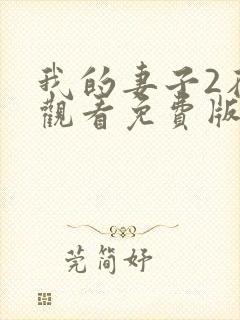 我的妻子2在
觀看免費版
莞簡妤